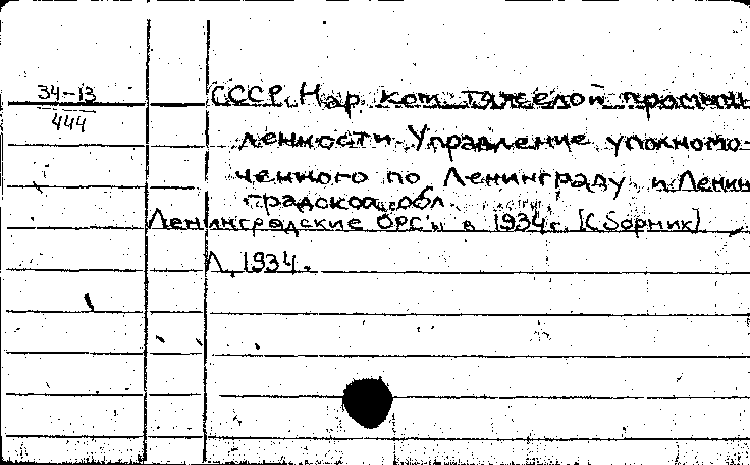 34-13
444
СССР. Нар. ком. тяжелой промыш-
ленности. Управление уполномо-
ченного по Ленинграду и Ленин-
градской обл.
Ленинградские ОРС'ы в 1934 г. [Сборник]
Л. 1934.